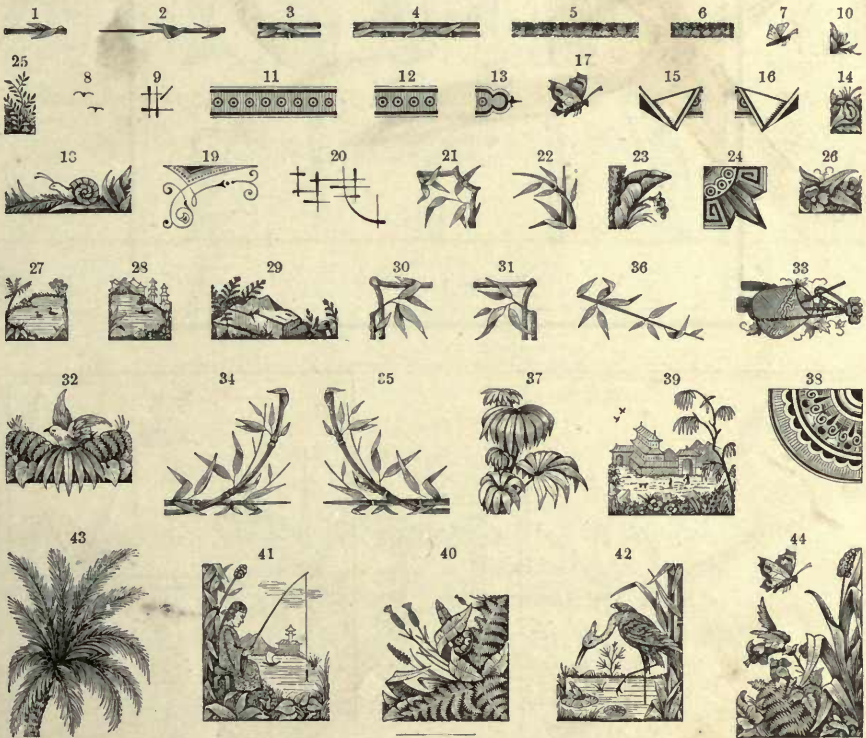 1 2 3 4 5 6 7 10
25 8 9 11 12 13 17 15 16 14
18 19 20 21 22 23 24 26
27 28 29 30 31 36 33
32 34 35 37 39 38
43 41 40 42 44